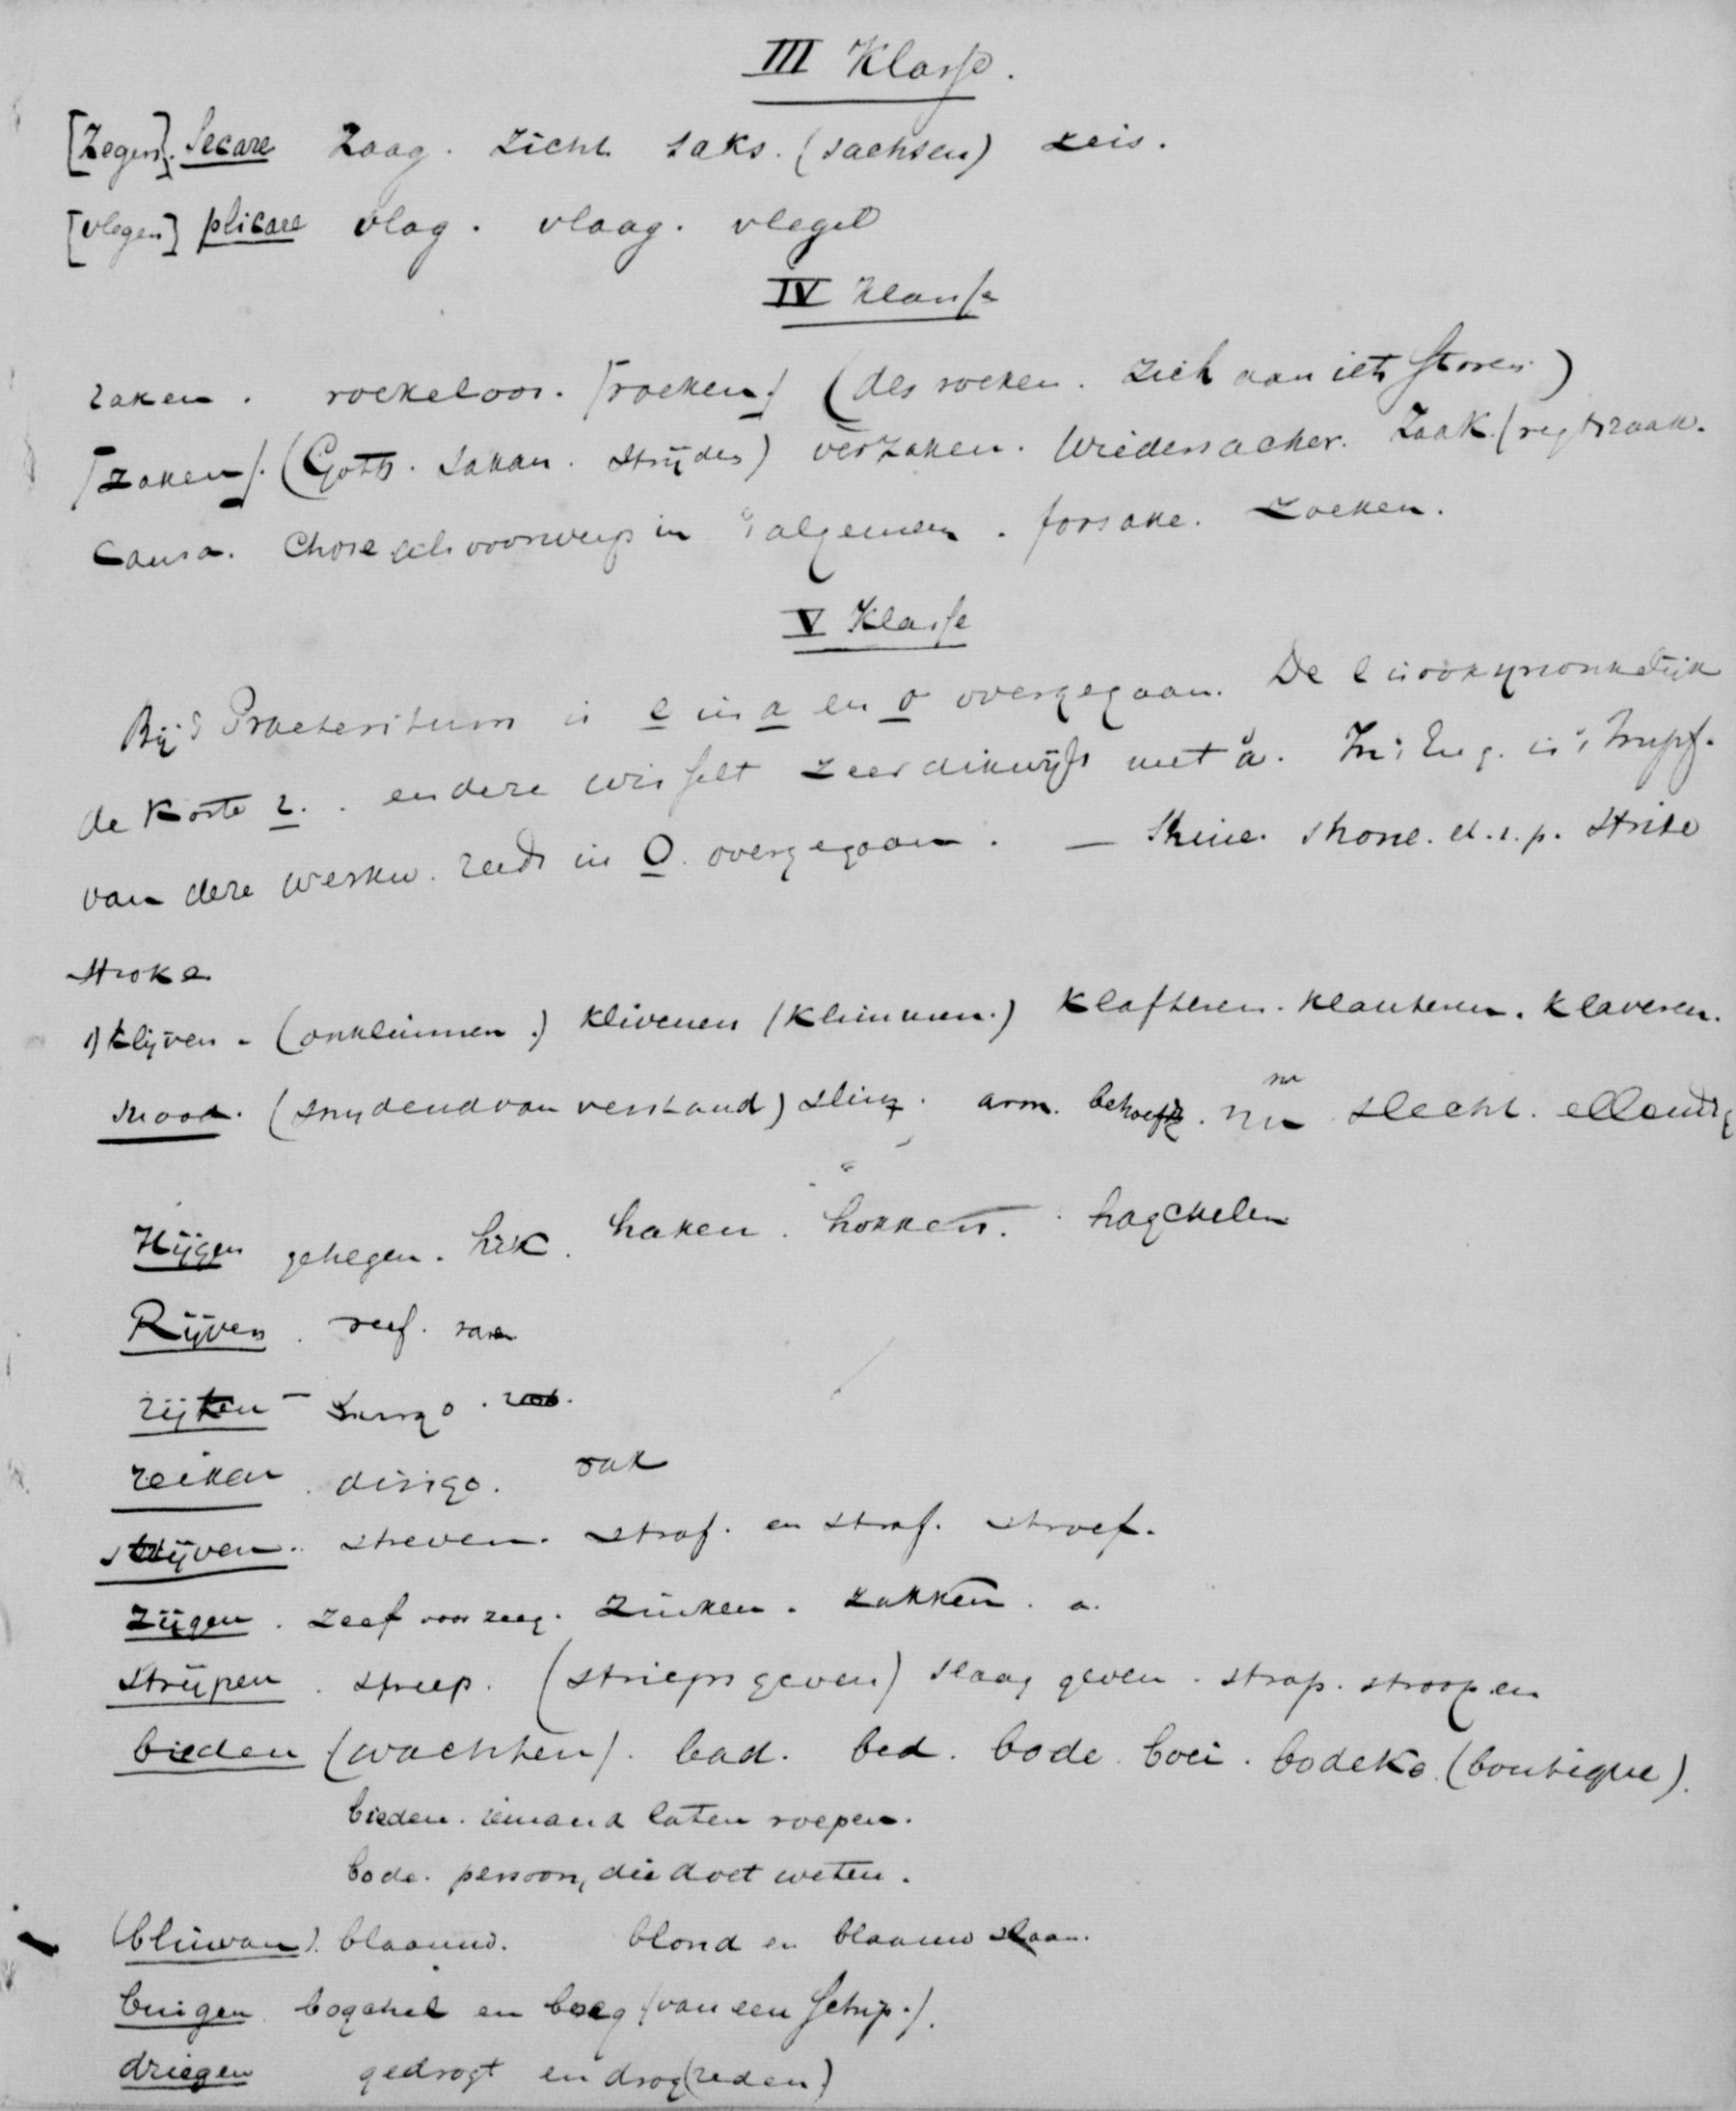 III Klasse.
[Zegen]. Secare Zaag. Zicht saks. (sachsen) zeis.
[vlegen] plicare vlag. vlaag. vlegel
IV Klasse
raken. roekeloos. [roeken] (des roeken. zich aan iets storen)
[zaken]. (Goth. sakan. strijden) verzaken. Wiedersacher. Zaak. (regtszaak.
Causa. Chose als voorwerp in 't algemeen. forsake. zoeken.
V Klasse
Bij 't Praeteritum is e in a en o overgegaan. De e is oorspronkelijk
de korte i. en deze wisselt zeer dikwijls met a. In 't Eng. is 't
van deze werkw. reeds in O overgegaan. — Shine. shone. strike
stroke
1) Klijven. (opklimmen.) klivenen (klimmen.) Klafteren. klauteren. klaveren.
snood. (snydend van verstand) slim. arm. behoeftig. nu slecht. ellendig
Hijgen gehegen. hik. haken. hokken. hagchelen
Rijven. reef.
rijken - surgo.
reiken. dirigo. rak
strijven. streven. straf. en straf. stroef.
Zijgen. Zeef voor zeeg. Zinken. zakken. a.
Strijpen. streep. (strieps geven) slaag geven. strap. stroopen
bieden (wachten). bad. bed. bode. boei. bodeko. (boutique).
bieden. iemand laten roepen.
bode. persoon, die doet weten.
(bliuwan). blaauw. blond en blaauw slaan.
buigen. bogchel en boeg (van een schip.).
driegen gedrogt en drog(reden)